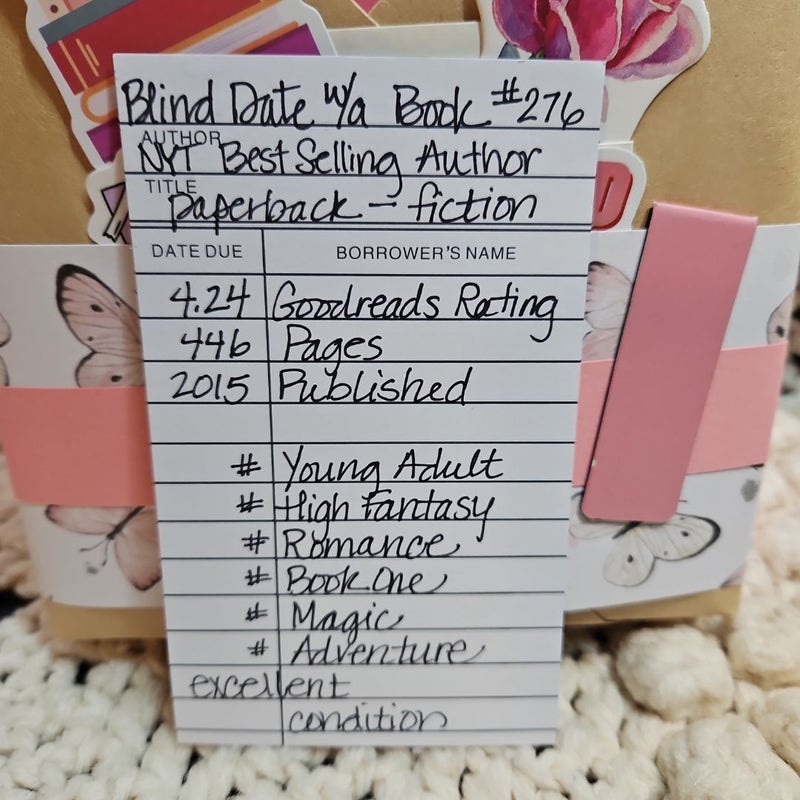 Blind Date w/a Book #276
AUTHOR
NYT Best Selling Author
TITLE
paperback - fiction
DATE DUE BORROWER'S NAME
4.24 Goodreads Rating
446 Pages
2015 Published
# Young Adult
# High Fantasy
# Romance
# Book One
# Magic
# Adventure
excellent
condition